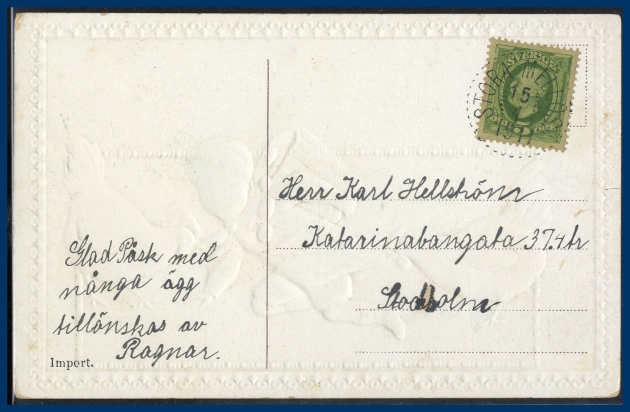 Glad Påsk med
många ägg
tillönskas av
Ragnar.
Import.
SVERIGE
STORA ME
15
Herr Karl Hellström
Katarinabangata 37. 4 tr
Stockholm